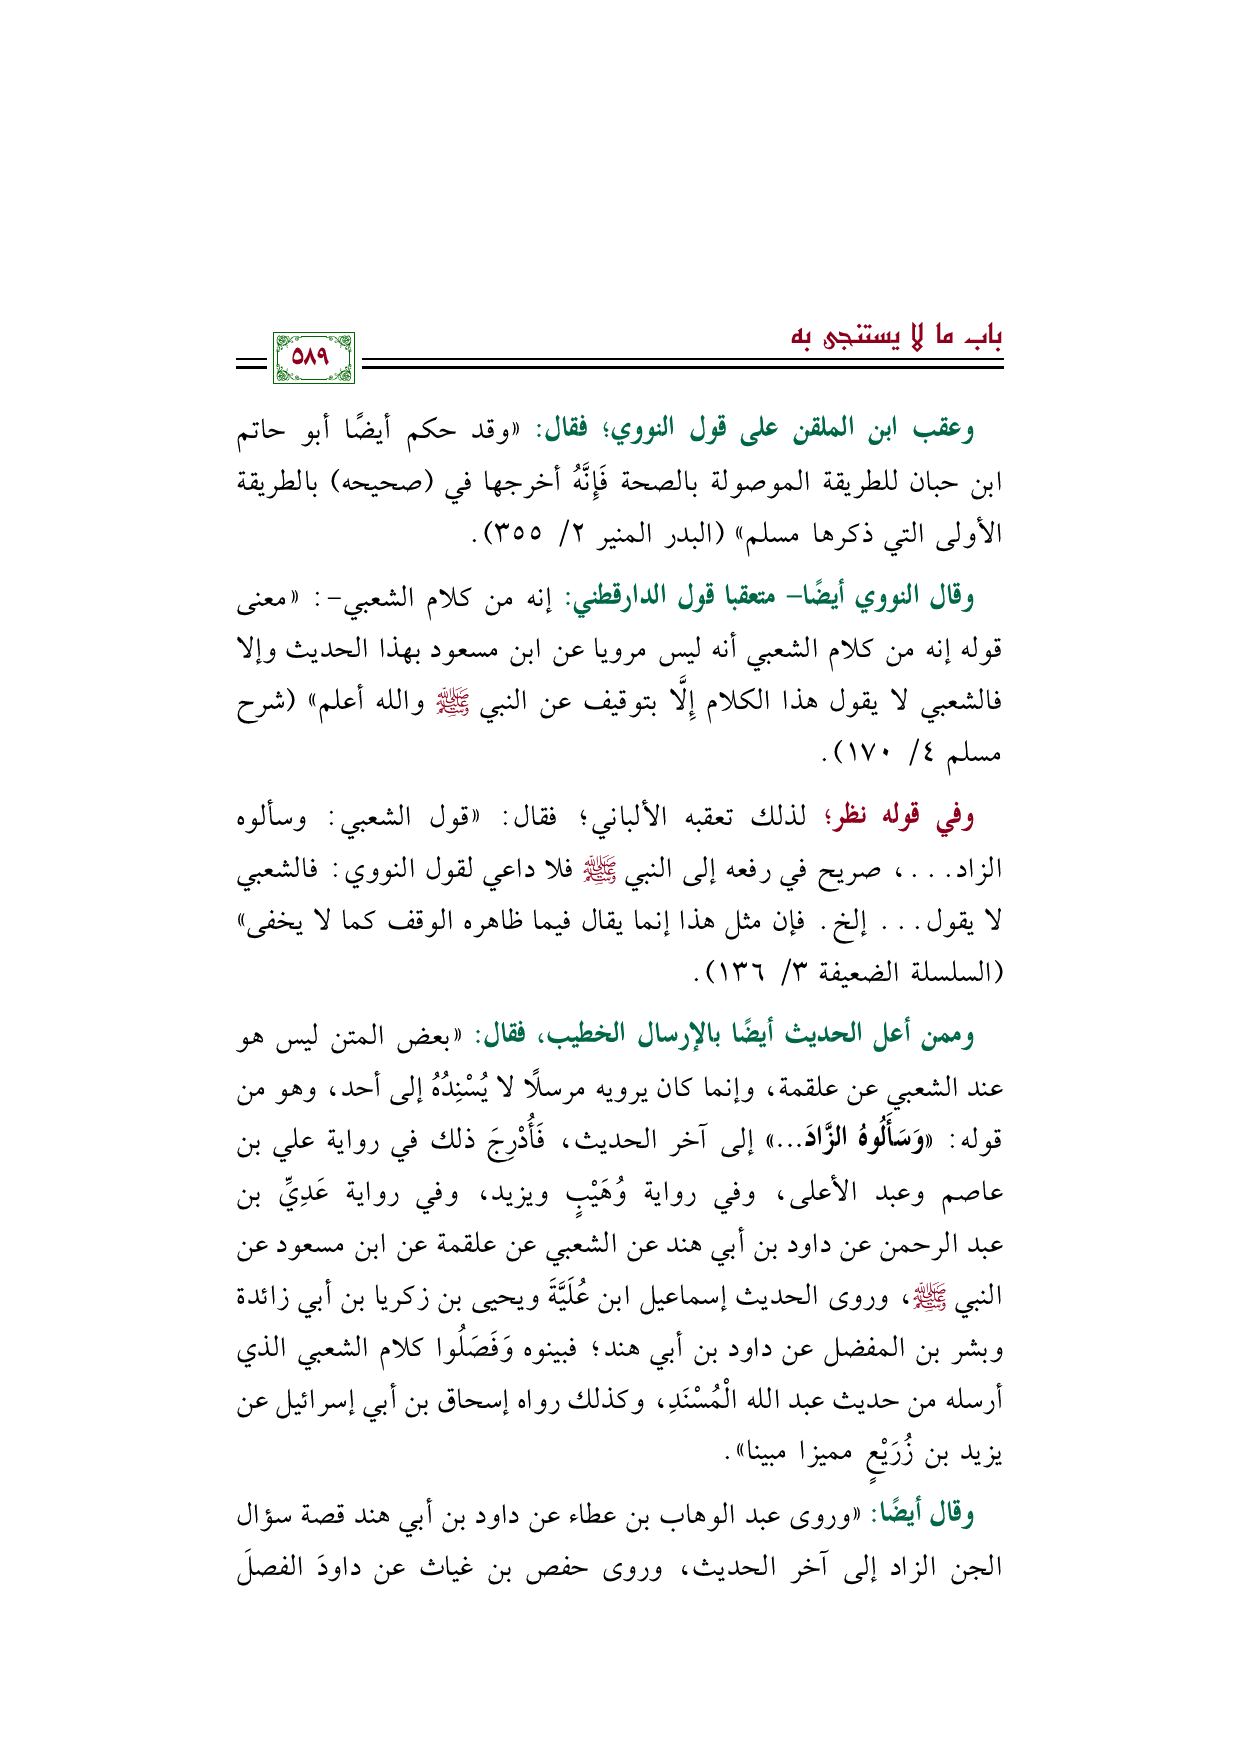 باب ما لا يستنجى به
٥٨٩
وعقب ابن الملقن على قول النووي؛ فقال: «وقد حكم أيضًا أبو حاتم
ابن حبان للطريقة الموصولة بالصحة فَإِنَّهُ أخرجها في (صحيحه) بالطريقة
الأولى التي ذكرها مسلم» (البدر المنير ٢/ ٣٥٥).
وقال النووي أيضًا- متعقبا قول الدارقطني: إنه من كلام الشعبي-: «معنى
قوله إنه من كلام الشعبي أنه ليس مرويا عن ابن مسعود بهذا الحديث وإلا
فالشعبي لا يقول هذا الكلام إِلَّا بتوقيف عن النبي ﷺ والله أعلم» (شرح
مسلم ٤/ ١٧٠).
وفي قوله نظر؛ لذلك تعقبه الألباني؛ فقال: «قول الشعبي: وسألوه
الزاد...، صريح في رفعه إلى النبي ﷺ فلا داعي لقول النووي: فالشعبي
لا يقول... إلخ. فإن مثل هذا إنما يقال فيما ظاهره الوقف كما لا يخفى»
(السلسلة الضعيفة ٣/ ١٣٦).
وممن أعل الحديث أيضًا بالإرسال الخطيب، فقال: «بعض المتن ليس هو
عند الشعبي عن علقمة، وإنما كان يرويه مرسلًا لا يُسْنِدُهُ إلى أحد، وهو من
قوله: «وَسَأَلُوهُ الزَّادَ...» إلى آخر الحديث، فَأُدْرِجَ ذلك في رواية علي بن
عاصم وعبد الأعلى، وفي رواية وُهَيْبٍ ويزيد، وفي رواية عَدِيِّ بن
عبد الرحمن عن داود بن أبي هند عن الشعبي عن علقمة عن ابن مسعود عن
النبي ﷺ، وروى الحديث إسماعيل ابن عُلَيَّةَ ويحيى بن زكريا بن أبي زائدة
وبشر بن المفضل عن داود بن أبي هند؛ فبينوه وَفَصَلُوا كلام الشعبي الذي
أرسله من حديث عبد الله الْمُسْنَدِ، وكذلك رواه إسحاق بن أبي إسرائيل عن
يزيد بن زُرَيْعٍ مميزا مبينا».
وقال أيضًا: «وروى عبد الوهاب بن عطاء عن داود بن أبي هند قصة سؤال
الجن الزاد إلى آخر الحديث، وروى حفص بن غياث عن داودَ الفصلَ